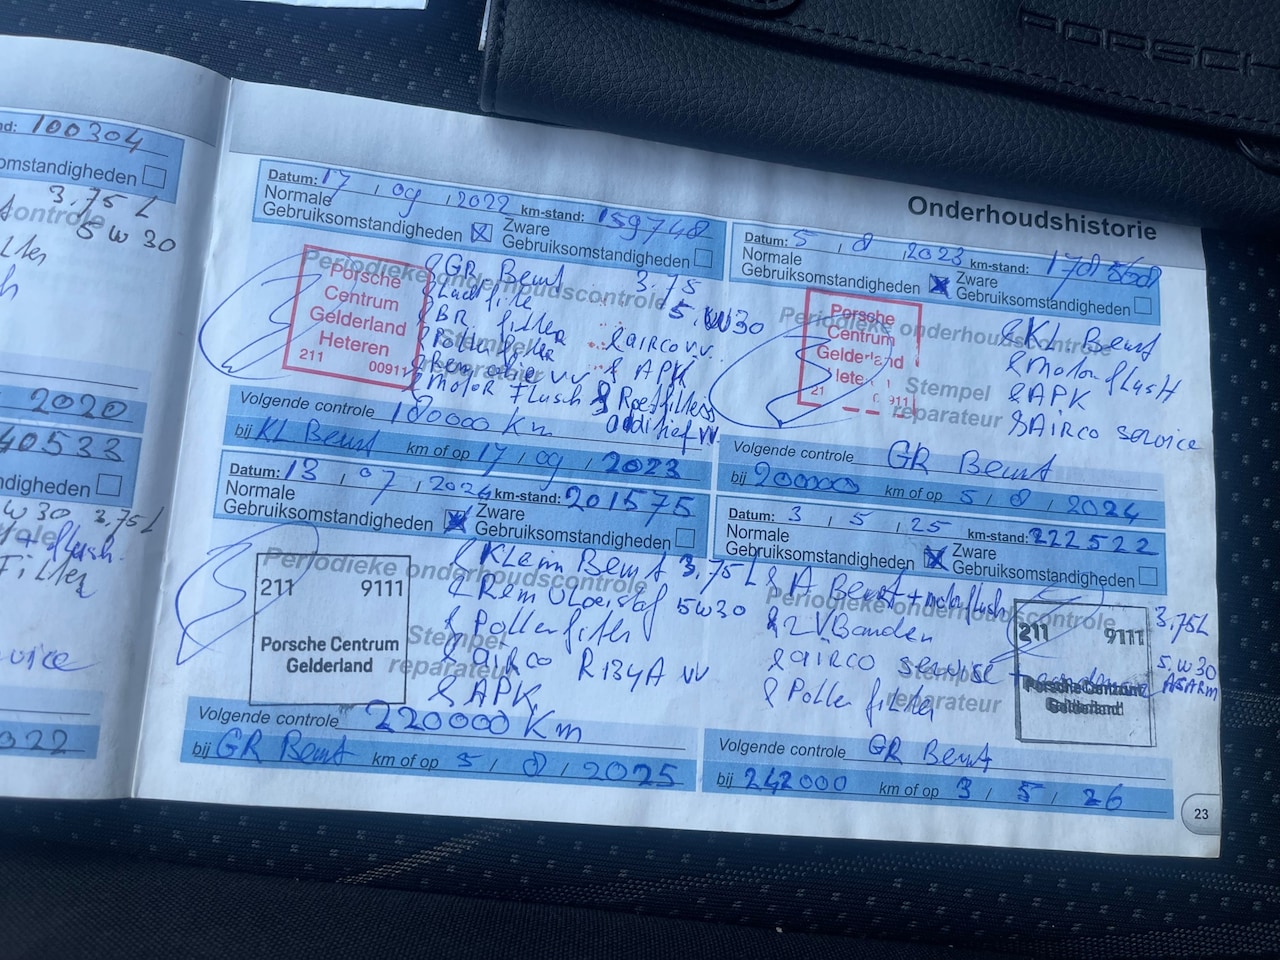 PORSCHE
nd: 100304
omstandigheden
3.75 L
5 W 30
2020
40533
ndigheden
W 30 3,75L
2022
Onderhoudshistorie
Datum: 17 / 09 / 2022 km-stand: 159748
Normale Gebruiksomstandigheden ☒ Zware Gebruiksomstandigheden ☐
Periodieke onderhoudscontrole
Stempel reparateur
Porsche
Centrum
Gelderland
Heteren
211 00911
GR Beurt 3.75
5.W30
Luchtfilter
BR filter
Pollenfilter
Rem olie vv
Motor flush
airco vv.
APK
Roetfilter
additief vv.
Volgende controle 180000 Km
bij KL Beurt km of op 17 / 09 / 2023
Datum: 5 / 8 / 2023 km-stand: 178568
Normale Gebruiksomstandigheden ☒ Zware Gebruiksomstandigheden ☐
Periodieke onderhoudscontrole
Stempel reparateur
Porsche
Centrum
Gelderland
KL Beurt
Motorflush
APK
Airco service
Volgende controle GR Beurt
bij 200000 km of op 5 / 8 / 2024
Datum: 13 / 07 / 2024 km-stand: 201575
Normale Gebruiksomstandigheden ☒ Zware Gebruiksomstandigheden ☐
Periodieke onderhoudscontrole
Stempel reparateur
211 9111
Porsche Centrum
Gelderland
Klein Beurt 3,75L
5W30
Pollenfilter
airco R134A vv
APK
Volgende controle 220000 Km
bij GR Beurt km of op 5 / 8 / 2025
Datum: 3 / 5 / 25 km-stand: 222522
Normale Gebruiksomstandigheden ☒ Zware Gebruiksomstandigheden ☐
Periodieke onderhoudscontrole
Stempel reparateur
A Beurt + motorflush
2 VBanden
airco service
Pollen filter
211 9111
Porsche Centrum
Gelderland
3,75L
5.W30
Volgende controle GR Beurt
bij 242000 km of op 3 / 5 / 26
23